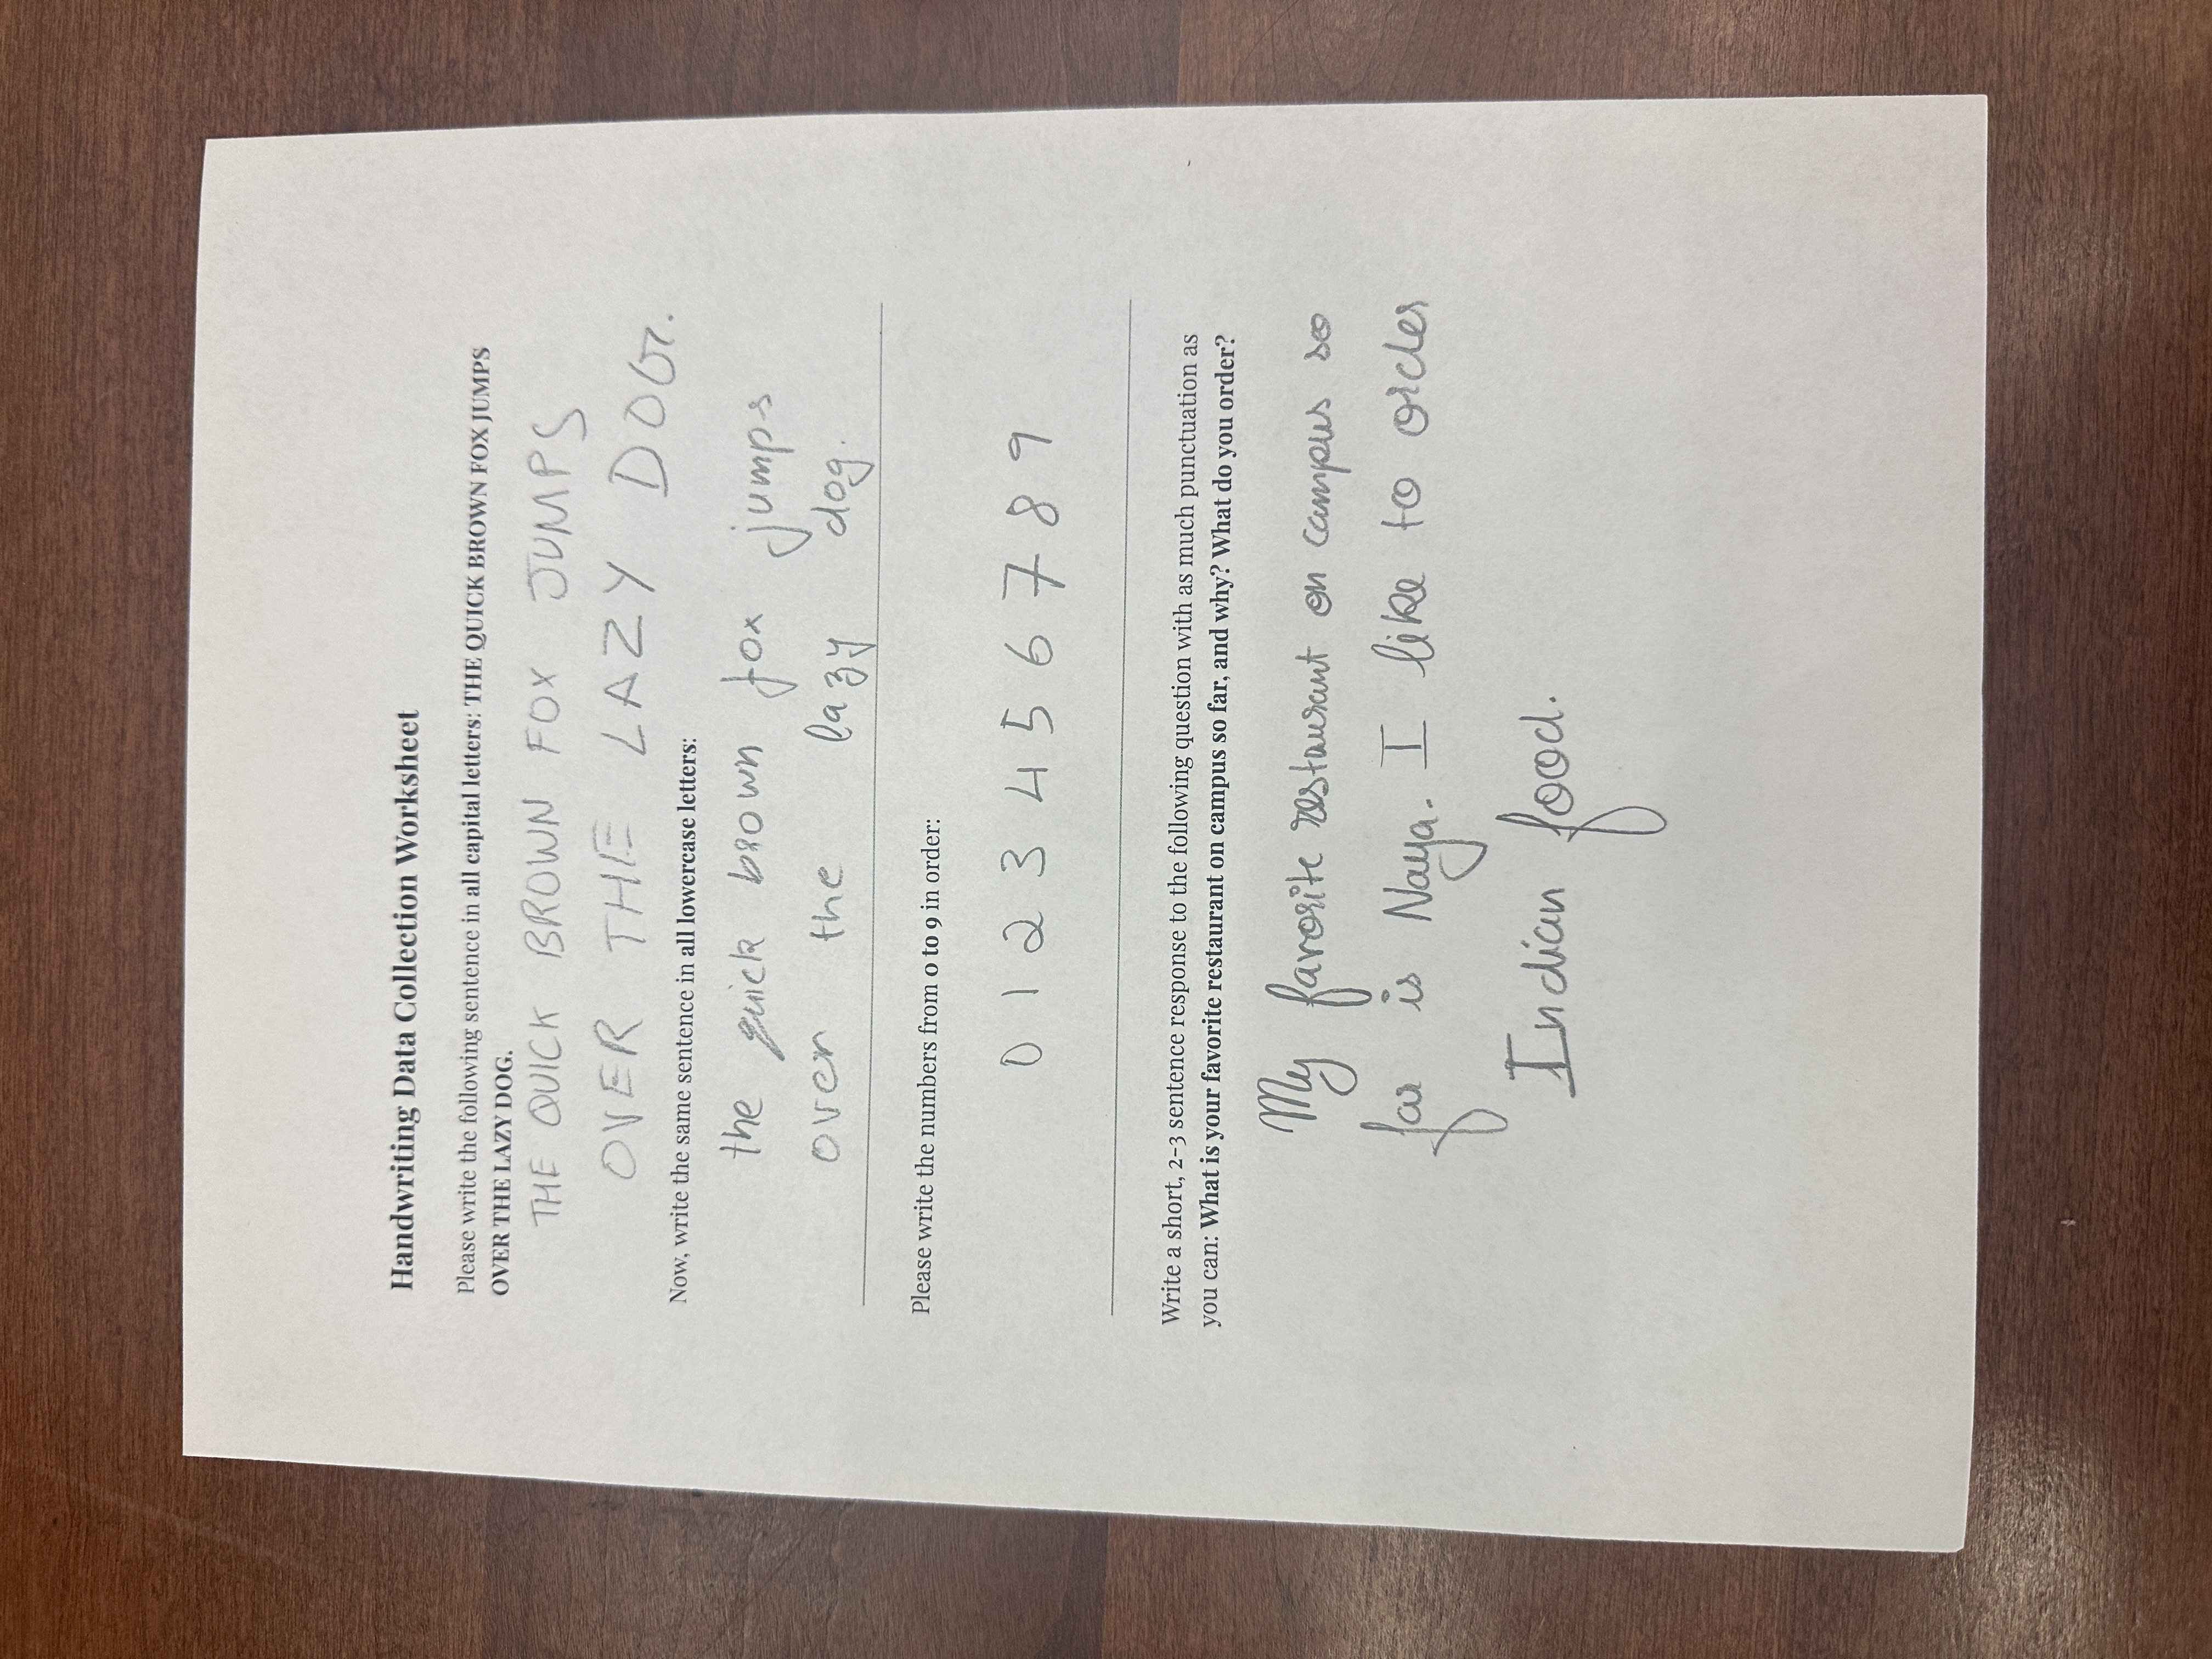 Handwriting Data Collection Worksheet
Please write the following sentence in all capital letters: THE QUICK BROWN FOX JUMPS
OVER THE LAZY DOG.
THE QUICK BROWN FOX JUMPS
OVER THE LAZY DOG.
Now, write the same sentence in all lowercase letters:
the quick brown fox jumps
over the lazy dog.
Please write the numbers from 0 to 9 in order:
0 1 2 3 4 5 6 7 8 9
Write a short, 2-3 sentence response to the following question with as much punctuation as
you can: What is your favorite restaurant on campus so far, and why? What do you order?
My favorite restaurant on campus so
far is Naya. I like to order
Indian food.